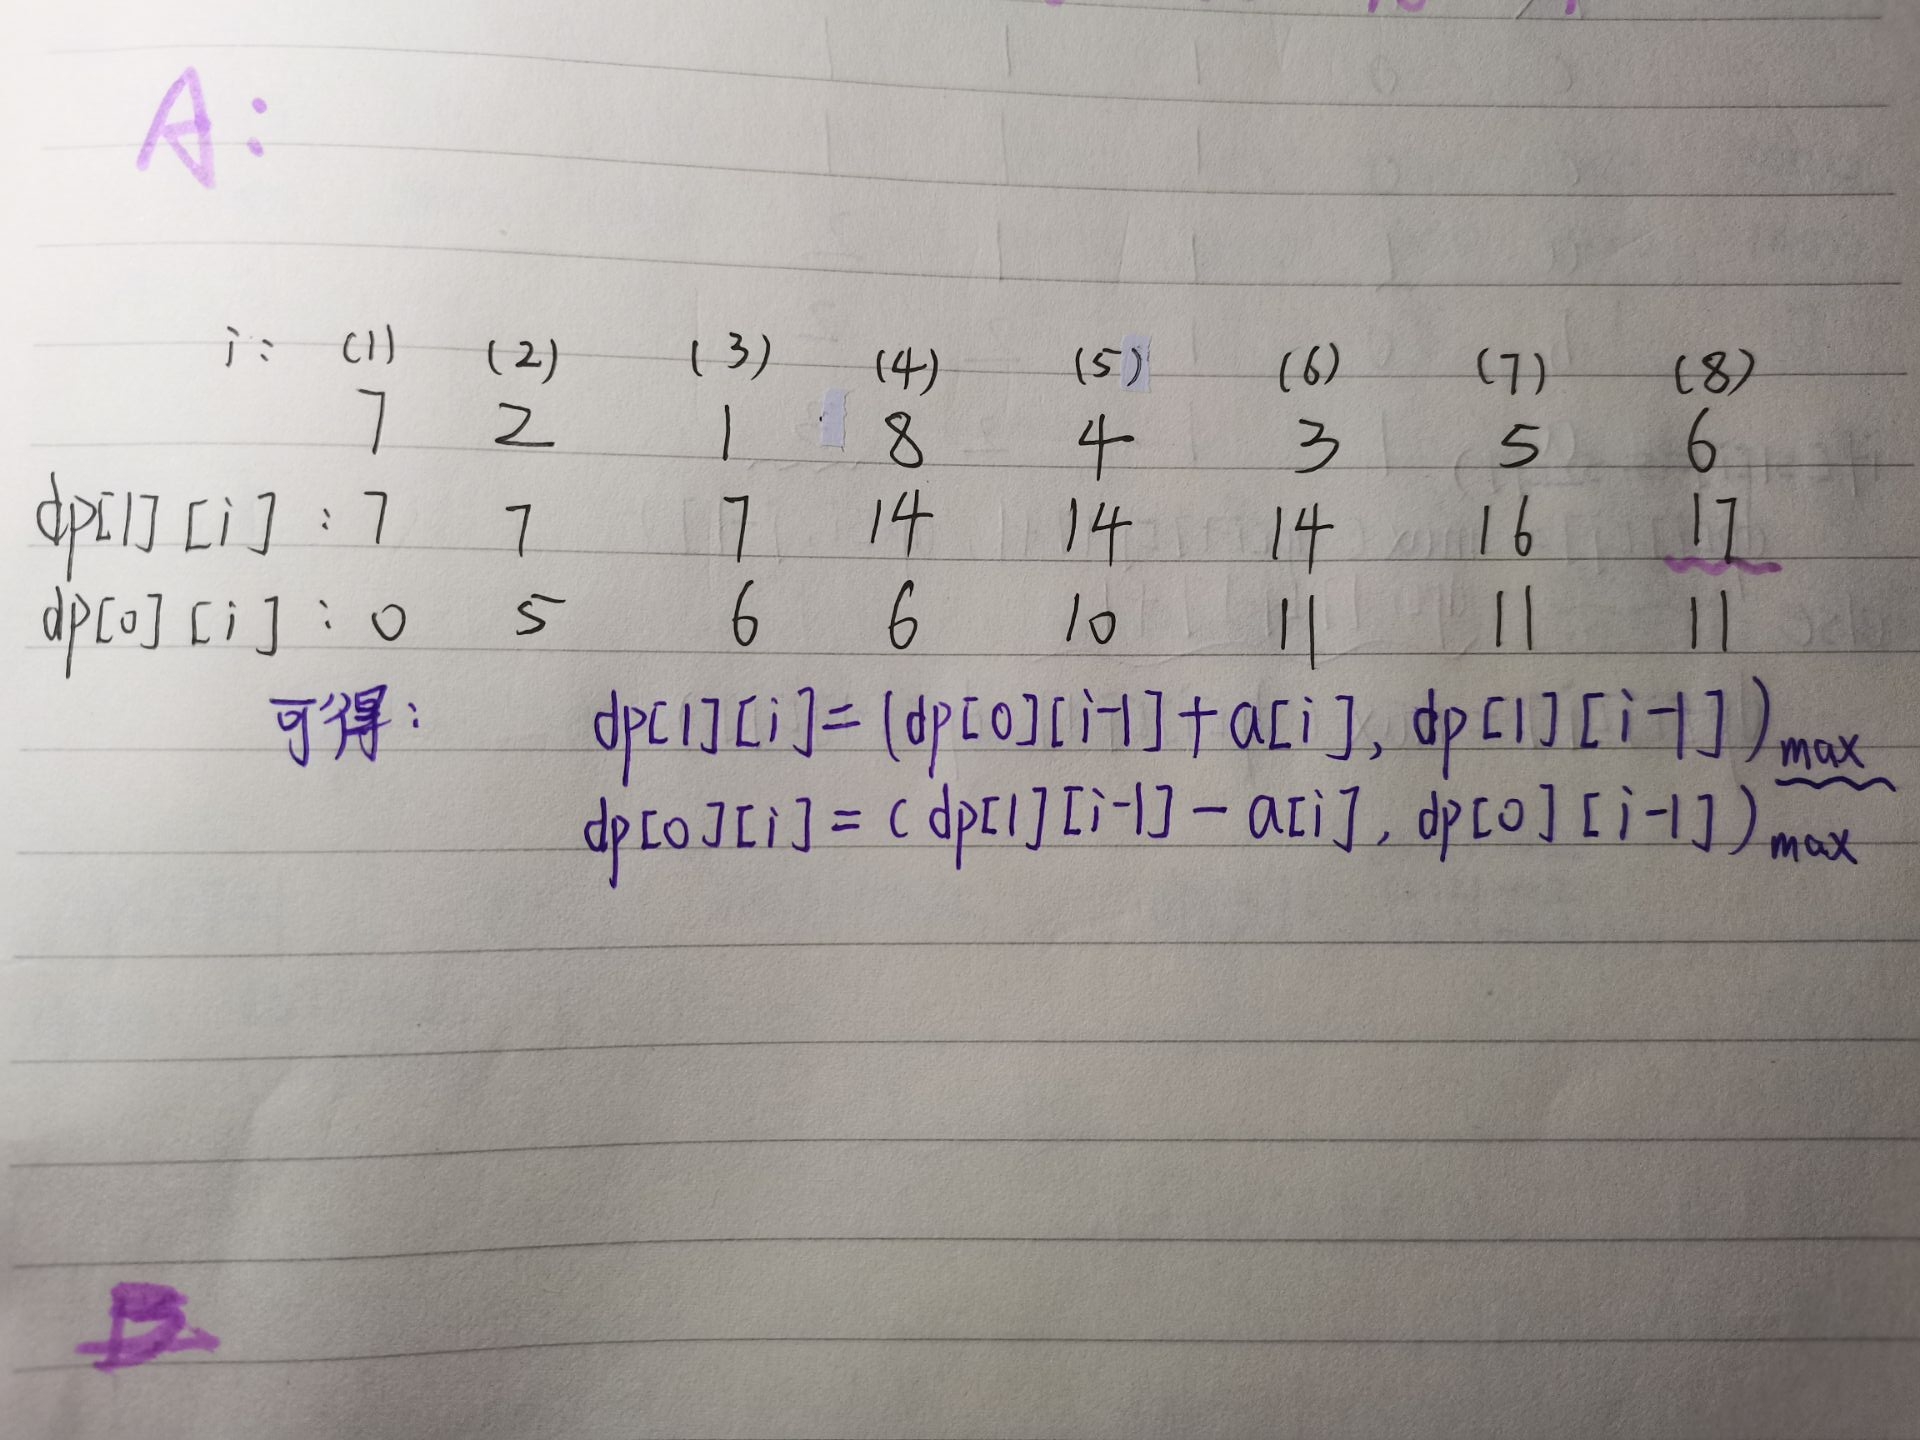 A:
i: (1) (2) (3) (4) (5) (6) (7) (8)
7 2 1 8 4 3 5 6
dp[1][i]: 7 7 7 14 14 14 16 17
dp[0][i]: 0 5 6 6 10 11 11 11
可得: dp[1][i]=(dp[0][i-1]+a[i], dp[1][i-1])max
dp[0][i]=(dp[1][i-1]-a[i], dp[0][i-1])max
B